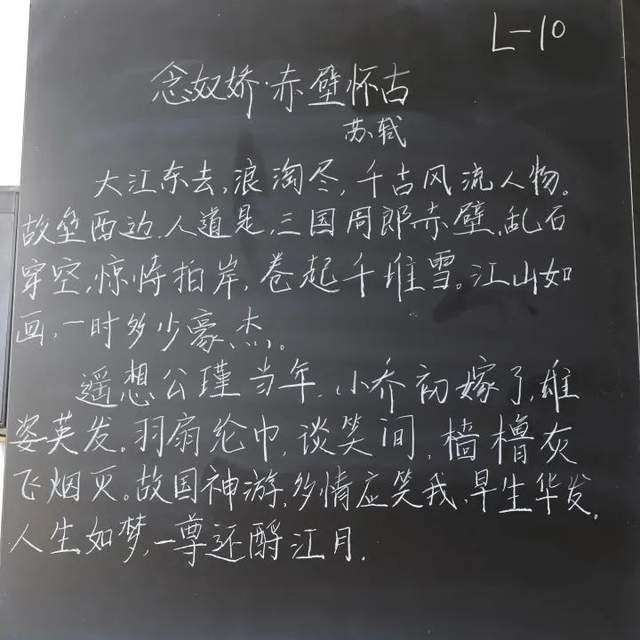 L-10
念奴娇·赤壁怀古
苏轼
大江东去,浪淘尽,千古风流人物。
故垒西边,人道是,三国周郎赤壁,乱石
穿空,惊涛拍岸,卷起千堆雪。江山如
画,一时多少豪杰。
遥想公瑾当年,小乔初嫁了,雄
姿英发。羽扇纶巾,谈笑间,樯橹灰
飞烟灭。故国神游,多情应笑我,早生华发,
人生如梦,一尊还酹江月.